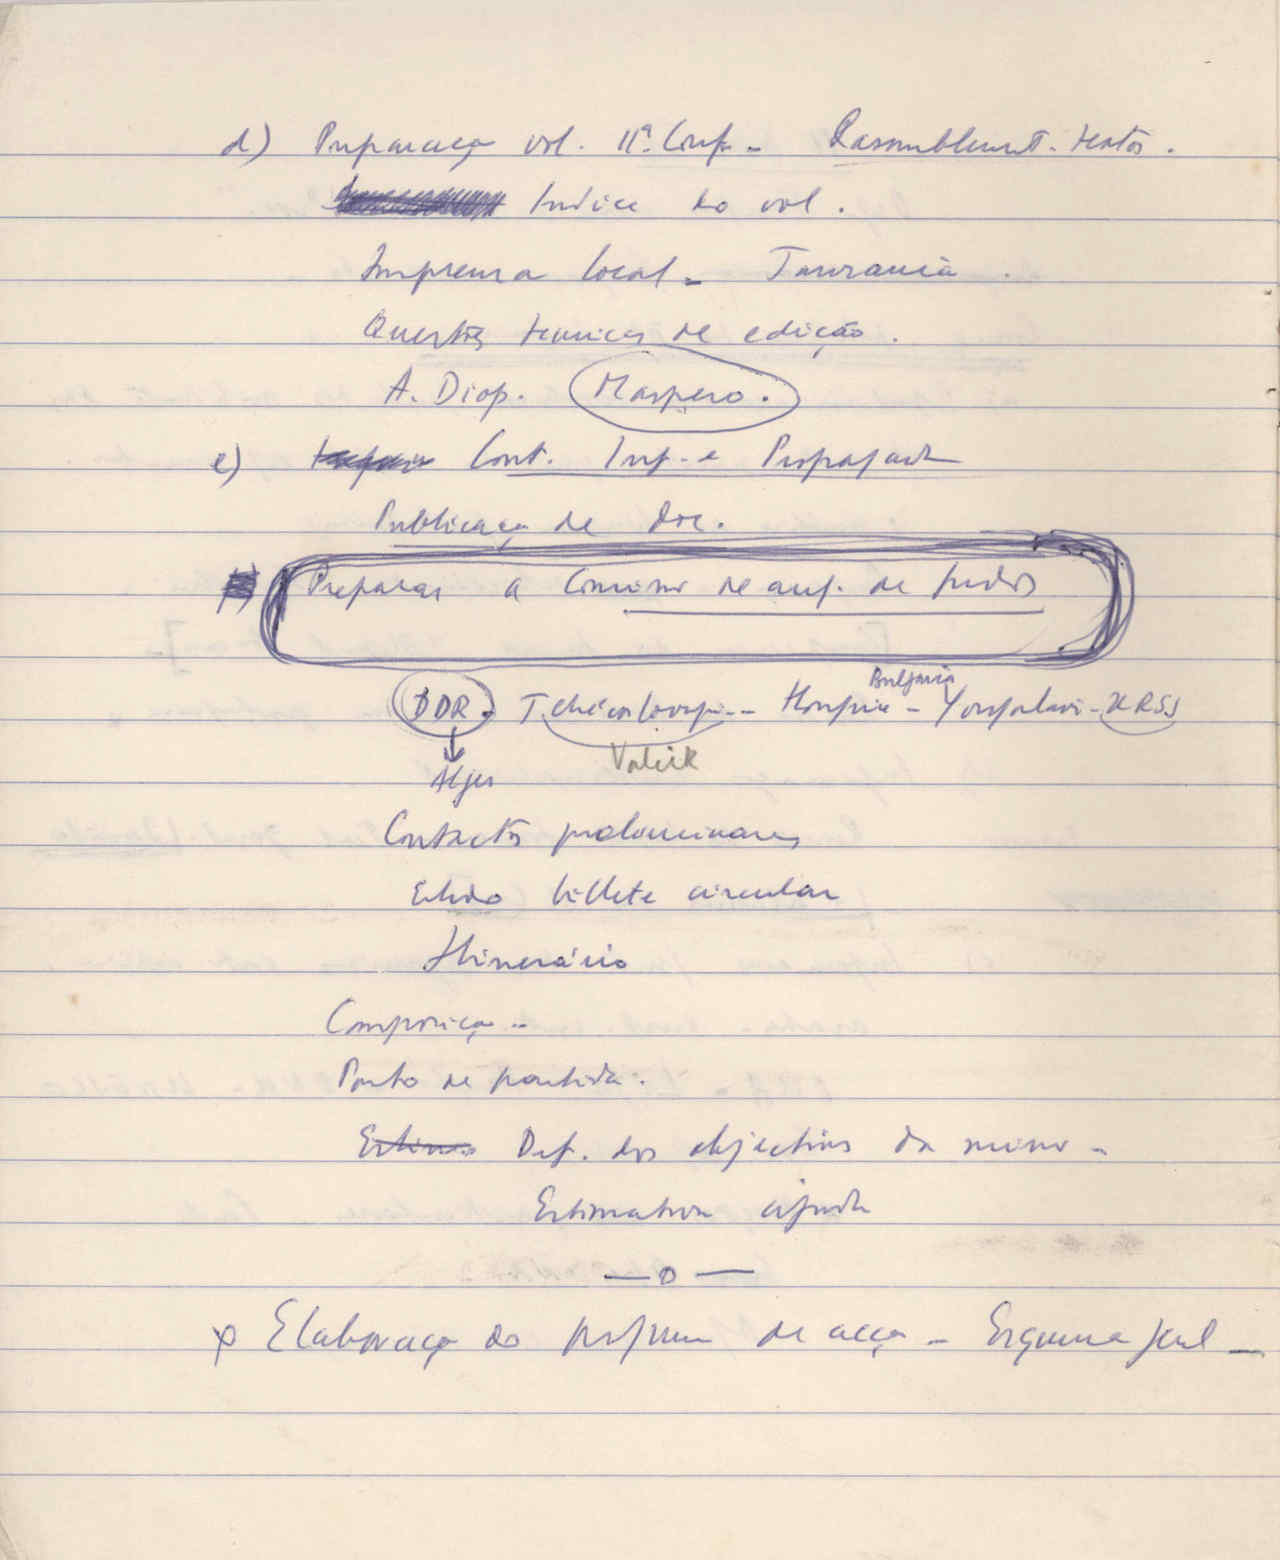 d) Preparação vol. IIª. Conf. - Rassemblement. textos.
Indice do vol.
Imprensa local - Tanzania.
Questões tecnicas de edição.
A. Diop. Maspero.
e) Cont. Inf. e Propaganda
Publicação de doc.
Preparar a Comissão de ang. de fundos
Bulgaria
DDR. Tchécoslovaqui -- Hongrie - Yougoslavi - URSS
Valirk
Alger
Contactos preliminares
Estudo billete circular
Itinerário
Composição -
Ponto de partida.
Def. dos objectivos da missão -
Estimation ajuda
— o —
Elaboração do programa de acção - Esquema geral -